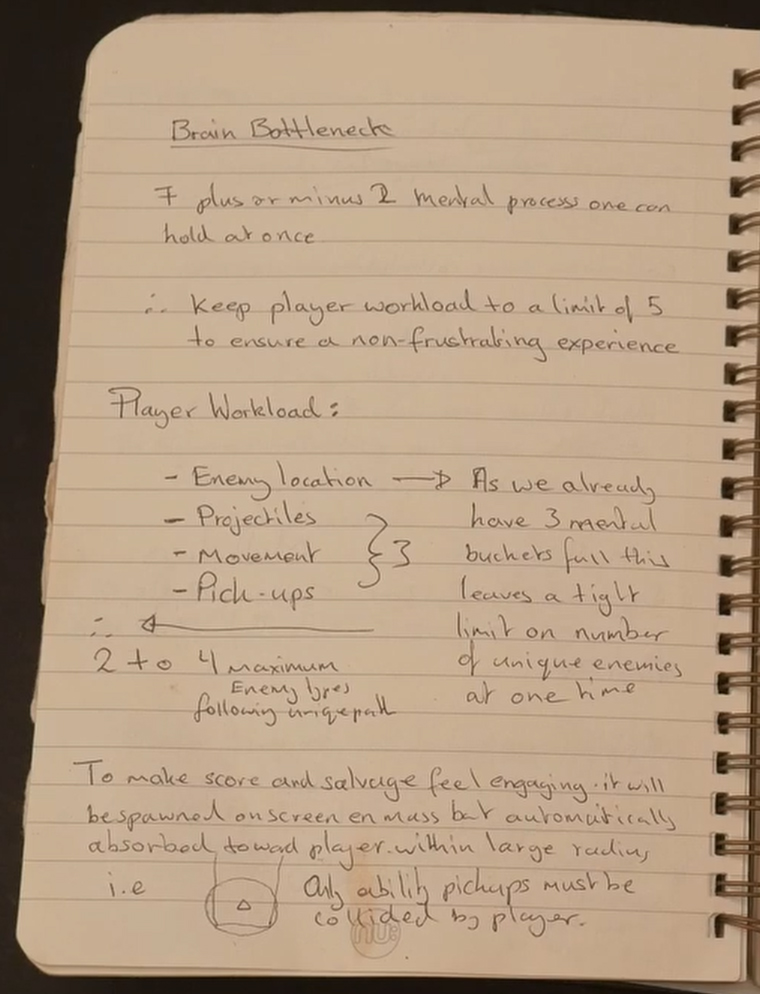 Brain Bottleneck
7 plus or minus 2 mental process one can
hold at once
∴ Keep player workload to a limit of 5
to ensure a non-frustrating experience
Player Workload:
- Enemy location → As we already
- Projectiles have 3 mental
- Movement } 3 buckets full this
- Pick-ups leaves a tight
∴ ← limit on number
2 to 4 maximum of unique enemies
Enemy types at one time
following unique path
To make score and salvage feel engaging. it will
be spawned on screen en mass but automatically
absorbed toward player. within large radius,
i.e Only ability pickups must be
collided by player.
nu: